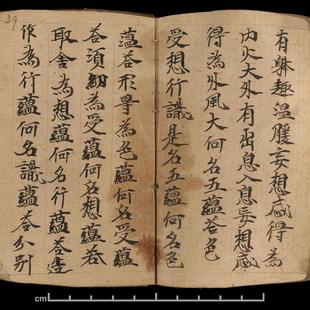 有躰趣溫暖妄想感得為
内火大外有出息入息妄想感
得為外風大何名五蘊答色
受想行識是名五蘊何名色
蘊答形㝵為色蘊何名受蘊
答領納為受蘊何名想蘊答
取舍為想蘊何名行蘊答造
作為行蘊何名識蘊答分別
39
cm